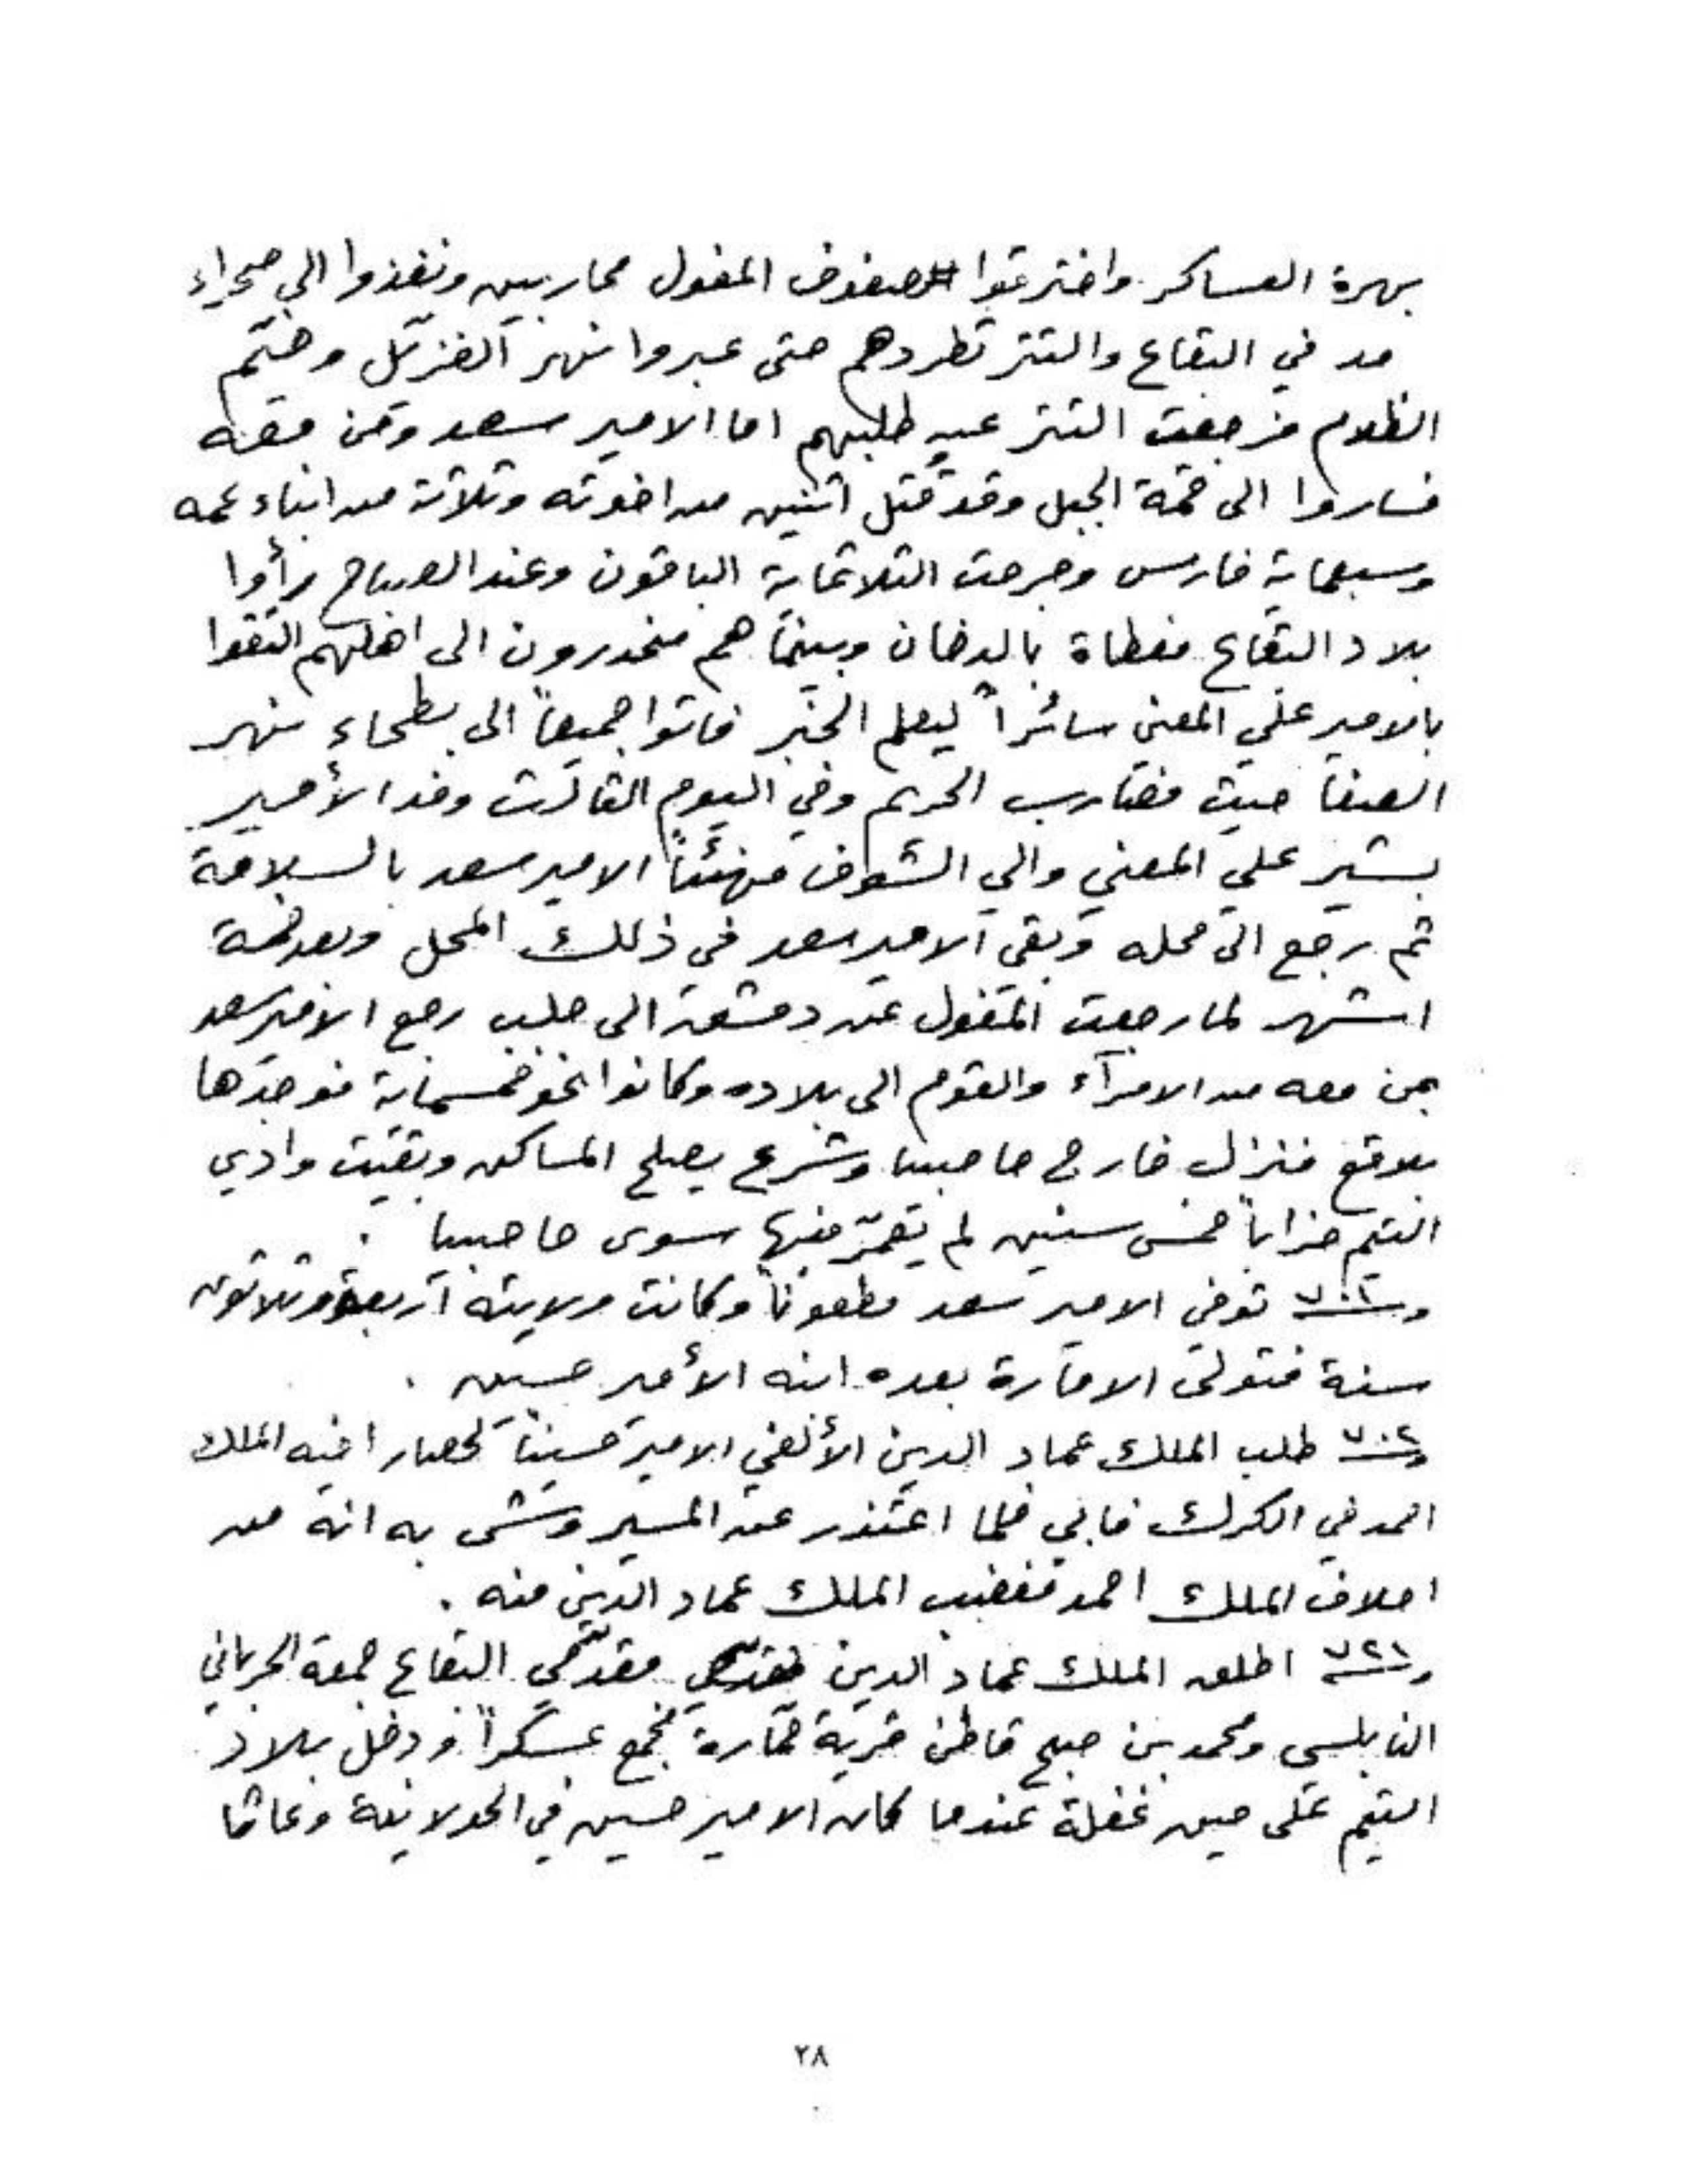 بهرة العساكر واخترقوا صفوف المغول محاربين ونفذوا الى صحراء
مد في البقاع والتتر تطردهم حتى عبروا نهر الغزيّل وخيّم
الظلام فرجعت التتر عن طلبهم اما الامير سعد ومَن معه
فساروا الى قمة الجبل وقد قُتل اثنين من اخوته وثلاثة من ابناء عمه
وسبعماية فارس وجرحت الثلاثماية الباقون وعند الصباح رأوا
بلاد البقاع مغطاة بالدخان وبينما هم منحدرون الى اهلهم التقوا
بالامير علي المعني سائراً ليعلم الخبر فاتوا جميعاً الى بطحاء نهر
الصفا حيث مضارب الحريم وفي اليوم الثالث وفد الأمير
بشير علي المعني والي الشوف مهنئاً الامير سعد بالسلامة
ثم رجع الى محله وبقى الامير سعد في ذلك المحل وبعد خمسة
اشهر لما رجعت المغول عن دمشق الى حلب رجع الامير سعد
بمن معه من الامرآء والقوم الى بلاده وكانوا نحو خمسماية فوجدها
بلاقع فنزل خارج حاصبيا وشرع يصلح المساكن وبقيت وادي
التيم خراباً خمس سنين لم يتعمّر منها سوى حاصبيا .
وسنة توفي الامير سعد مطعوناً وكانت ولايته اربعة وثلاثون
سنة فتولى الامارة بعده ابنه الأمير حسين .
وسنة ٧٠٢ طلب الملك عماد الدين الألفي الامير حسيناً لحصار اخيه الملك
احمد في الكرك فابى فلما اعتذر عن المسير وشى به انه من
احلاف الملك احمد فغضب الملك عماد الدين منه .
وسنة ٧٢١ اطلق الملك عماد الدين مقدّمي البقاع جمعة الحرباني
النابلسي ومحمد بن صبح قاطن قرية قمّارة فجمع عسكراً ودخل بلاد
التيم على حين غفلة عندما كان الامير حسين في الحولانية وعاثا
٢٨